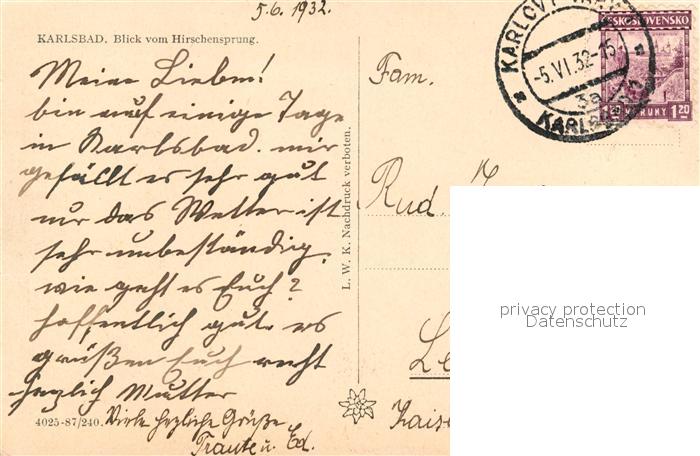 5.6.1932.
KARLSBAD. Blick vom Hirschensprung.
Meine Lieben!
bin auf einige Tage
in Karlsbad. mir
gefällt es sehr gut
nur das Wetter ist
sehr unbeständig.
wie geht es Euch?
hoffentlich gut. es
grüßen Euch recht
herzlich Mutter
Viele herzliche Grüße
Traute u. Ed.
4025-87/240.
L. W. K. Nachdruck verboten.
Fam.
Rud.
KARLOVY
-5.VI.32-15
3a
KARLSBAD
ČESKOSLOVENSKO
1.20 KORUNY 1.20
privacy protection
Datenschutz